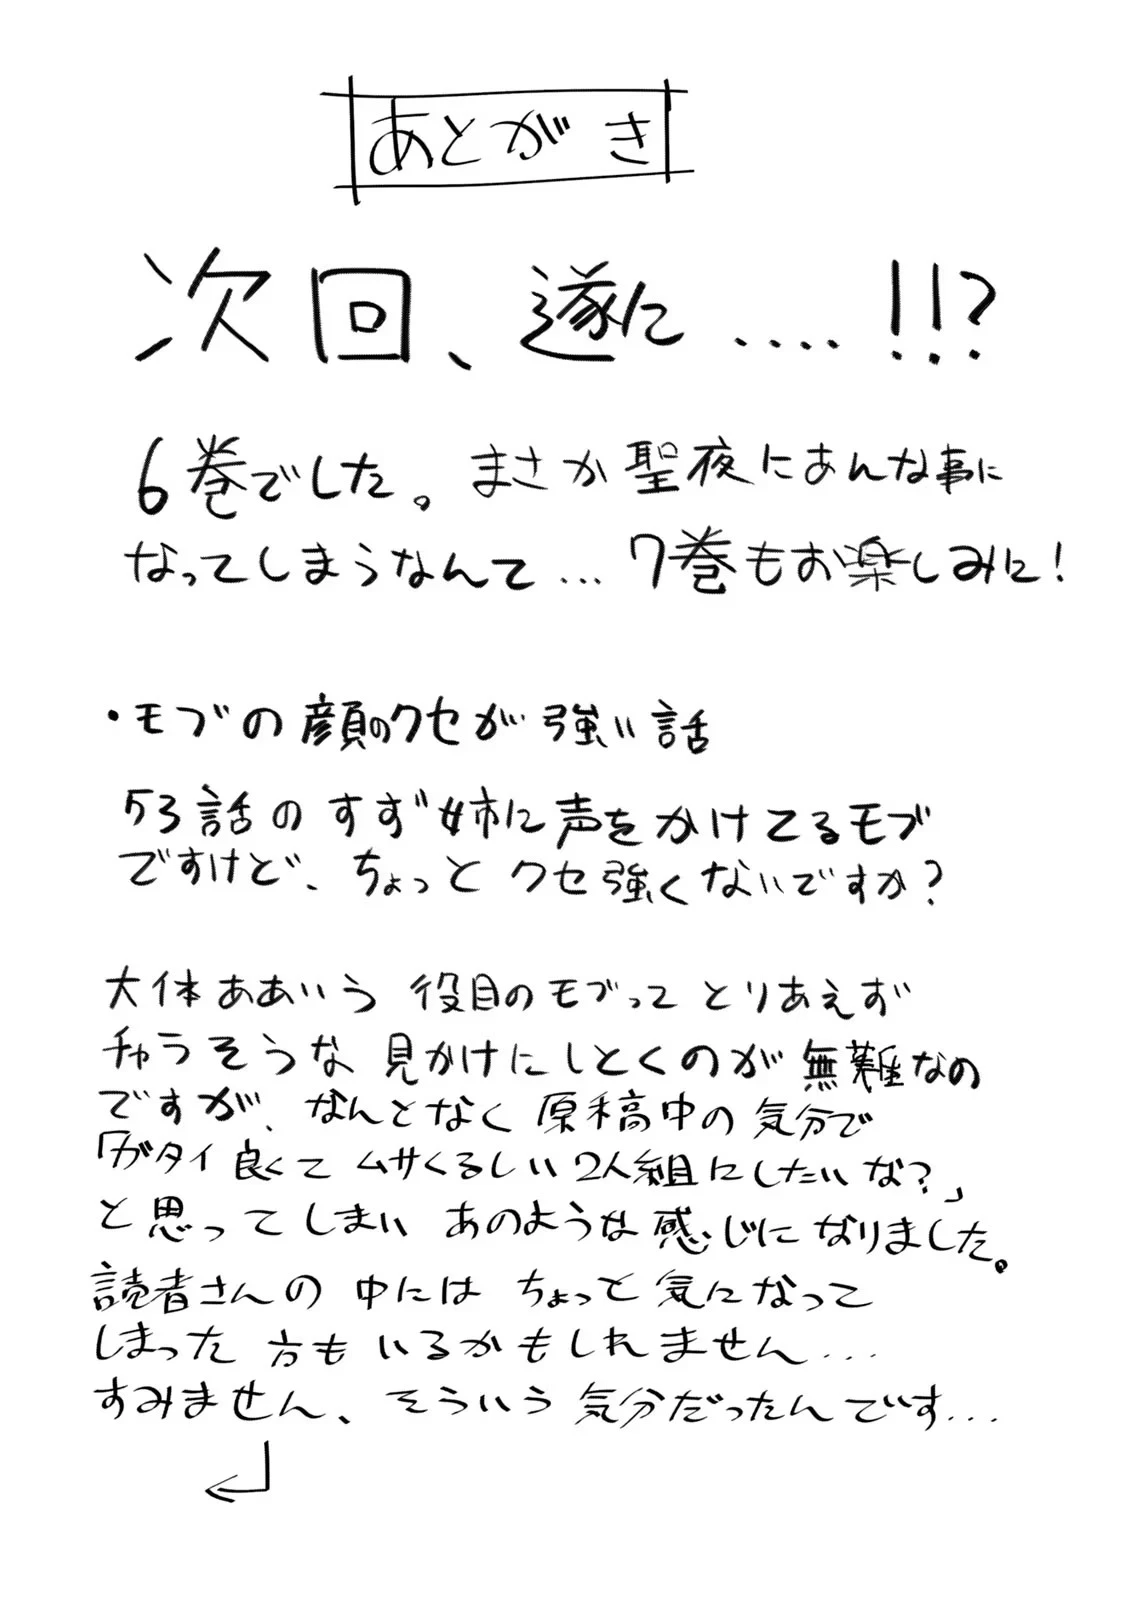 あとがき
次回、遂に....!!?
6巻でした。まさか聖夜にあんな事に
なってしまうなんて...7巻もお楽しみに!
・モブの顔のクセが強い話
53話のすず姉に声をかけてるモブ
ですけど、ちょっとクセ強くないですか?
大体ああいう役目のモブってとりあえず
チャラそうな見かけにしとくのが無難なの
ですが、なんとなく原稿中の気分で
「ガタイ良くてムサくるしい2人組にしたいな?」
と思ってしまいあのような感じになりました。
読者さんの中にはちょっと気になって
しまった方もいるかもしれません...
すみません、そういう気分だったんです...